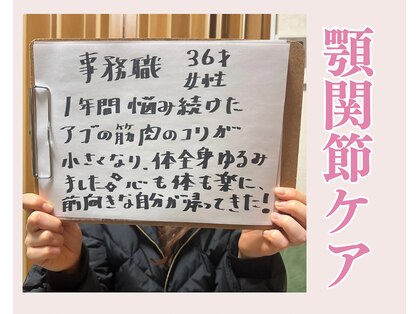 事務職 36才
女性
1年間悩み続けた
アゴの筋肉のコリが
小さくなり、体全身ゆるみ
ました♪心も体も楽に、
前向きな自分が帰ってきた!
顎関節ケア